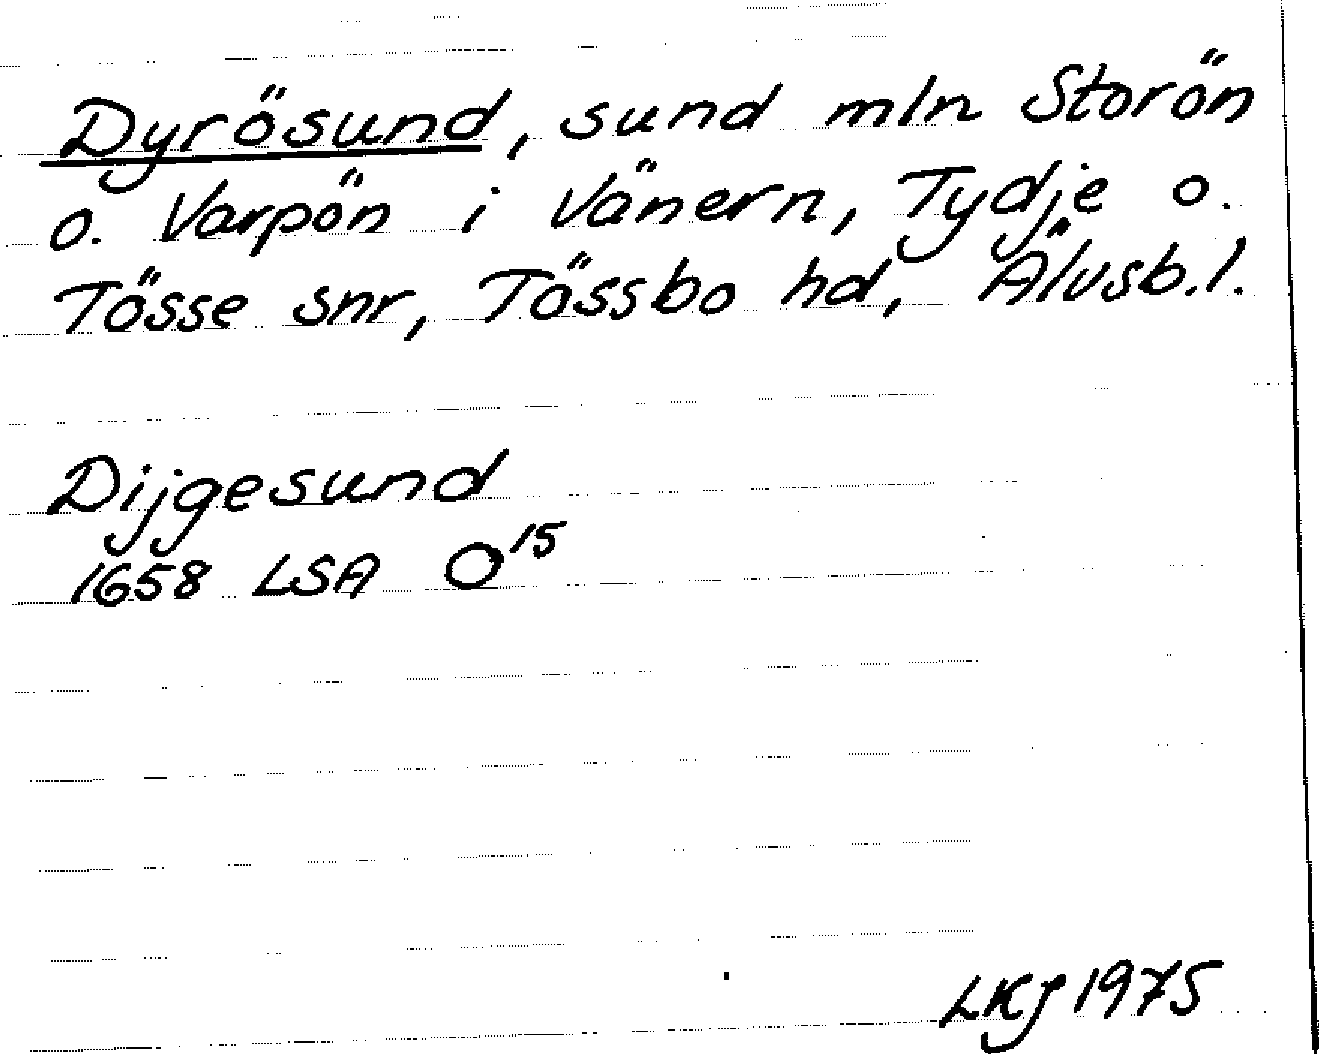 Dyrösund, sund mln Storön
o. Varpön i Vänern, Tydje o.
Tösse snr, Tössbo hd, Älvsb.l.
Dijgesund
1658 LSA O15
LKJ 1975